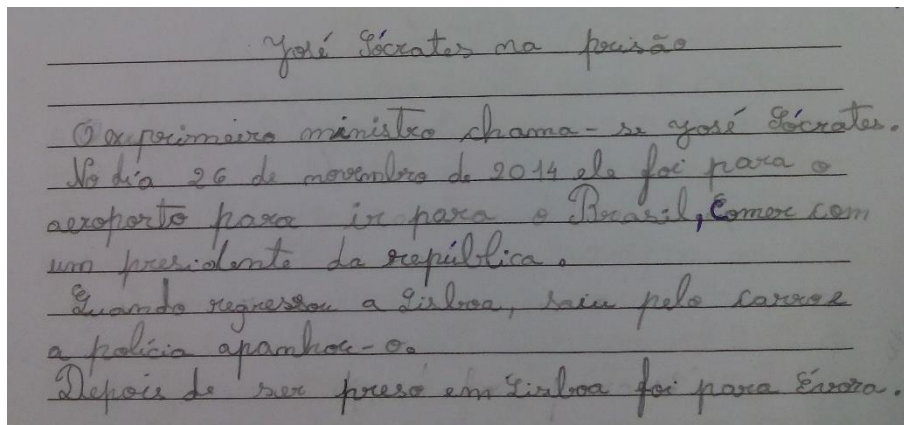 José Sócrates na prisão
O exprimeiro ministro chama-se José Sócrates.
No dia 26 de novembro de 2014 ele foi para o
aeroporto para ir para o Brasil, comer com
um presidente da república.
Quando regressou a Lisboa, saiu pelo carro e
a polícia apanhou-o.
Depois de ser preso em Lisboa foi para Évora.